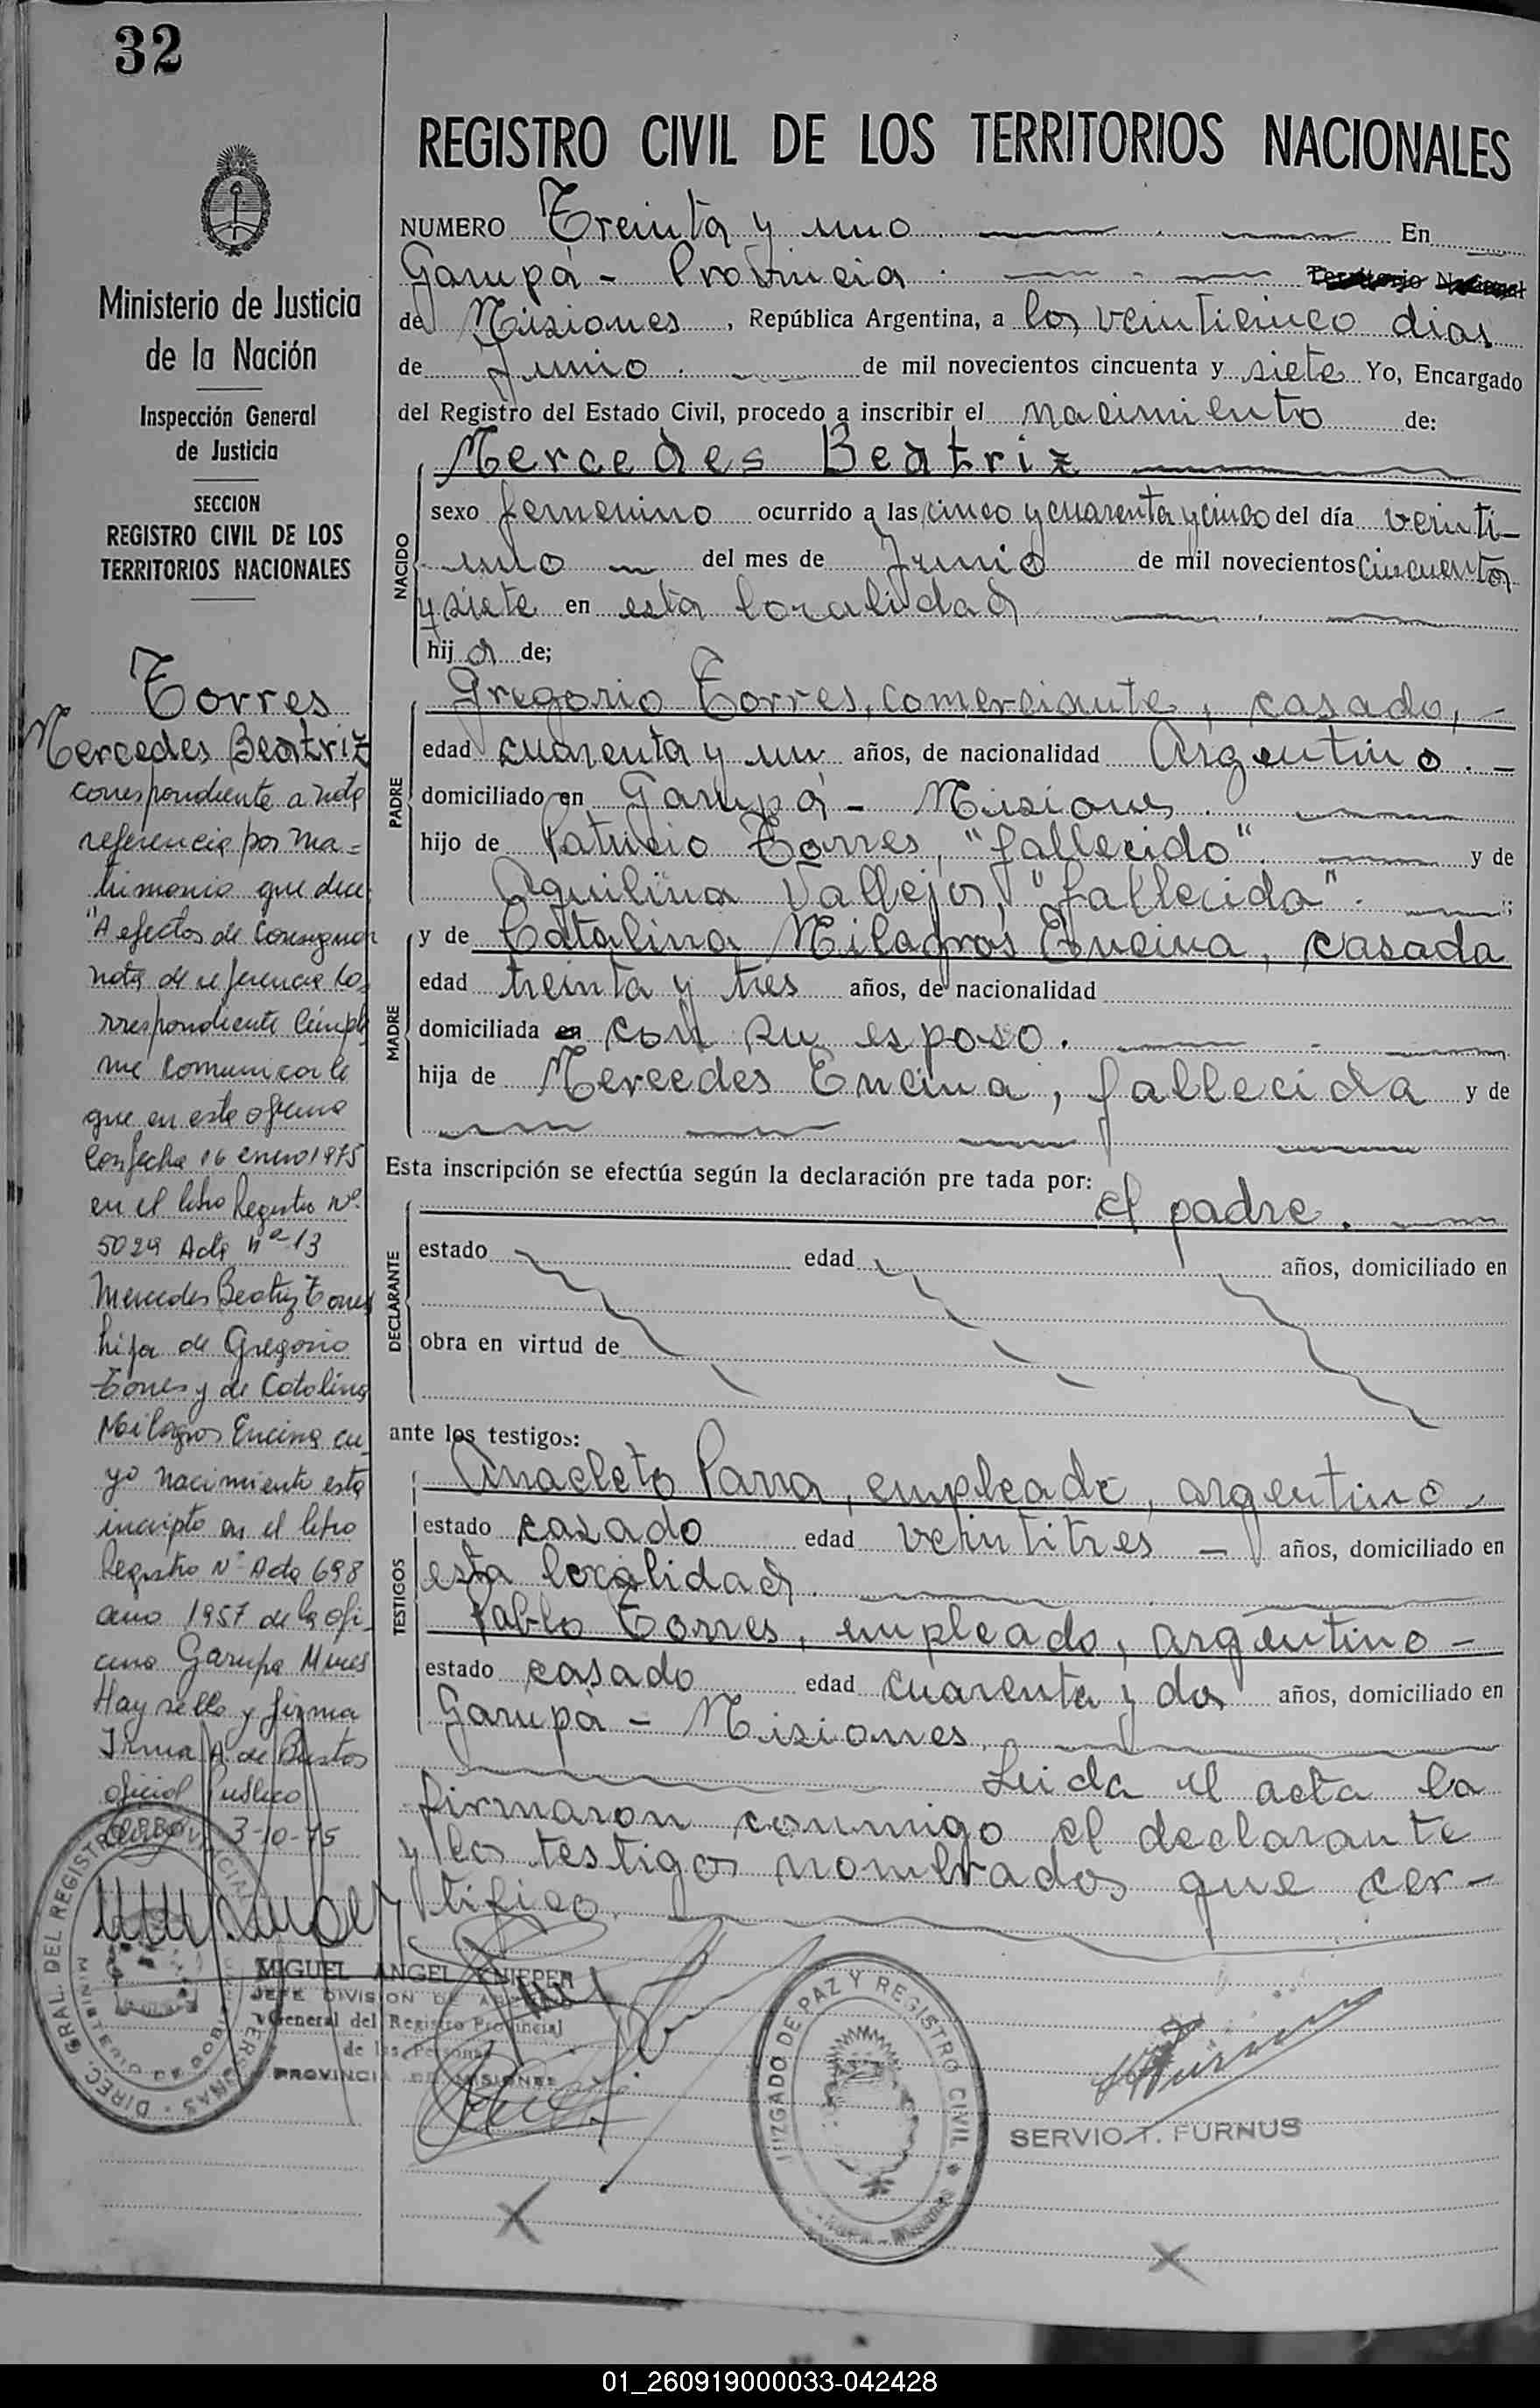 32
Ministerio de Justicia
de la Nación
Inspección General
de Justicia
SECCION
REGISTRO CIVIL DE LOS
TERRITORIOS NACIONALES
Torres
Mercedes Beatriz
correspondiente a nota
referencia por ma=
trimonio que dice
"A efectos de consignar
nota de referencia co
rrespondiente cúmple
me comunicarle
que en esta oficina
con fecha 16 enero 1975
en el libro Registro Nº
5029 Acta Nº 13
Mercedes Beatriz Torres
hija de Gregorio
Torres y de Catalina
Milagros Encina cu_
yo nacimiento esta
inscripto en el libro
Registro Nº Acta 698
año 1957 de la ofi_
cina Garupa Mnes
Hay sello y firma
Irma A. de Bustos
oficial Publico
3-10-75
MIGUEL ANGEL KNIEPER
JEFE DIVISION DE
General del Registro Provincial
de las Personas
PROVINCIA DE MISIONES
REGISTRO CIVIL DE LOS TERRITORIOS NACIONALES
NUMERO Treinta y uno En
Garupá - Provincia Territorio Nacional
de Misiones, República Argentina, a los veinticinco dias
de Junio de mil novecientos cincuenta y siete Yo, Encargado
del Registro del Estado Civil, procedo a inscribir el nacimiento de:
Mercedes Beatriz
NACIDO
sexo femenino ocurrido a las cinco y cuarenta y cinco del día veinti-
uno del mes de Junio de mil novecientos cincuenta
y siete en esta localidad
hij a de;
PADRE
Gregorio Torres, comerciante, casado, -
edad cuarenta y un años, de nacionalidad Argentino. -
domiciliado en Garupá - Misiones.
hijo de Patricio Torres, "fallecido". y de
Aquilina Vallejos, "fallecida".;
MADRE
y de Catalina Milagros Encina, casada
edad treinta y tres años, de nacionalidad
domiciliada en con su esposo.
hija de Mercedes Encina, fallecida y de
Esta inscripción se efectúa según la declaración pre tada por:
el padre.
DECLARANTE
estado edad años, domiciliado en
obra en virtud de
ante los testigos:
TESTIGOS
Anacleto Parra, empleado, argentino
estado casado edad veintitres - años, domiciliado en
esta localidad.
Pablo Torres, empleado, argentino -
estado casado edad cuarenta y dos años, domiciliado en
Garupá - Misiones.
Leida el acta la
firmaron conmigo el declarante
y los testigos nombrados que cer-
tifico.
JUZGADO DE PAZ Y REGISTRO CIVIL
SERVIO T. FURNUS
01_260919000033-042428